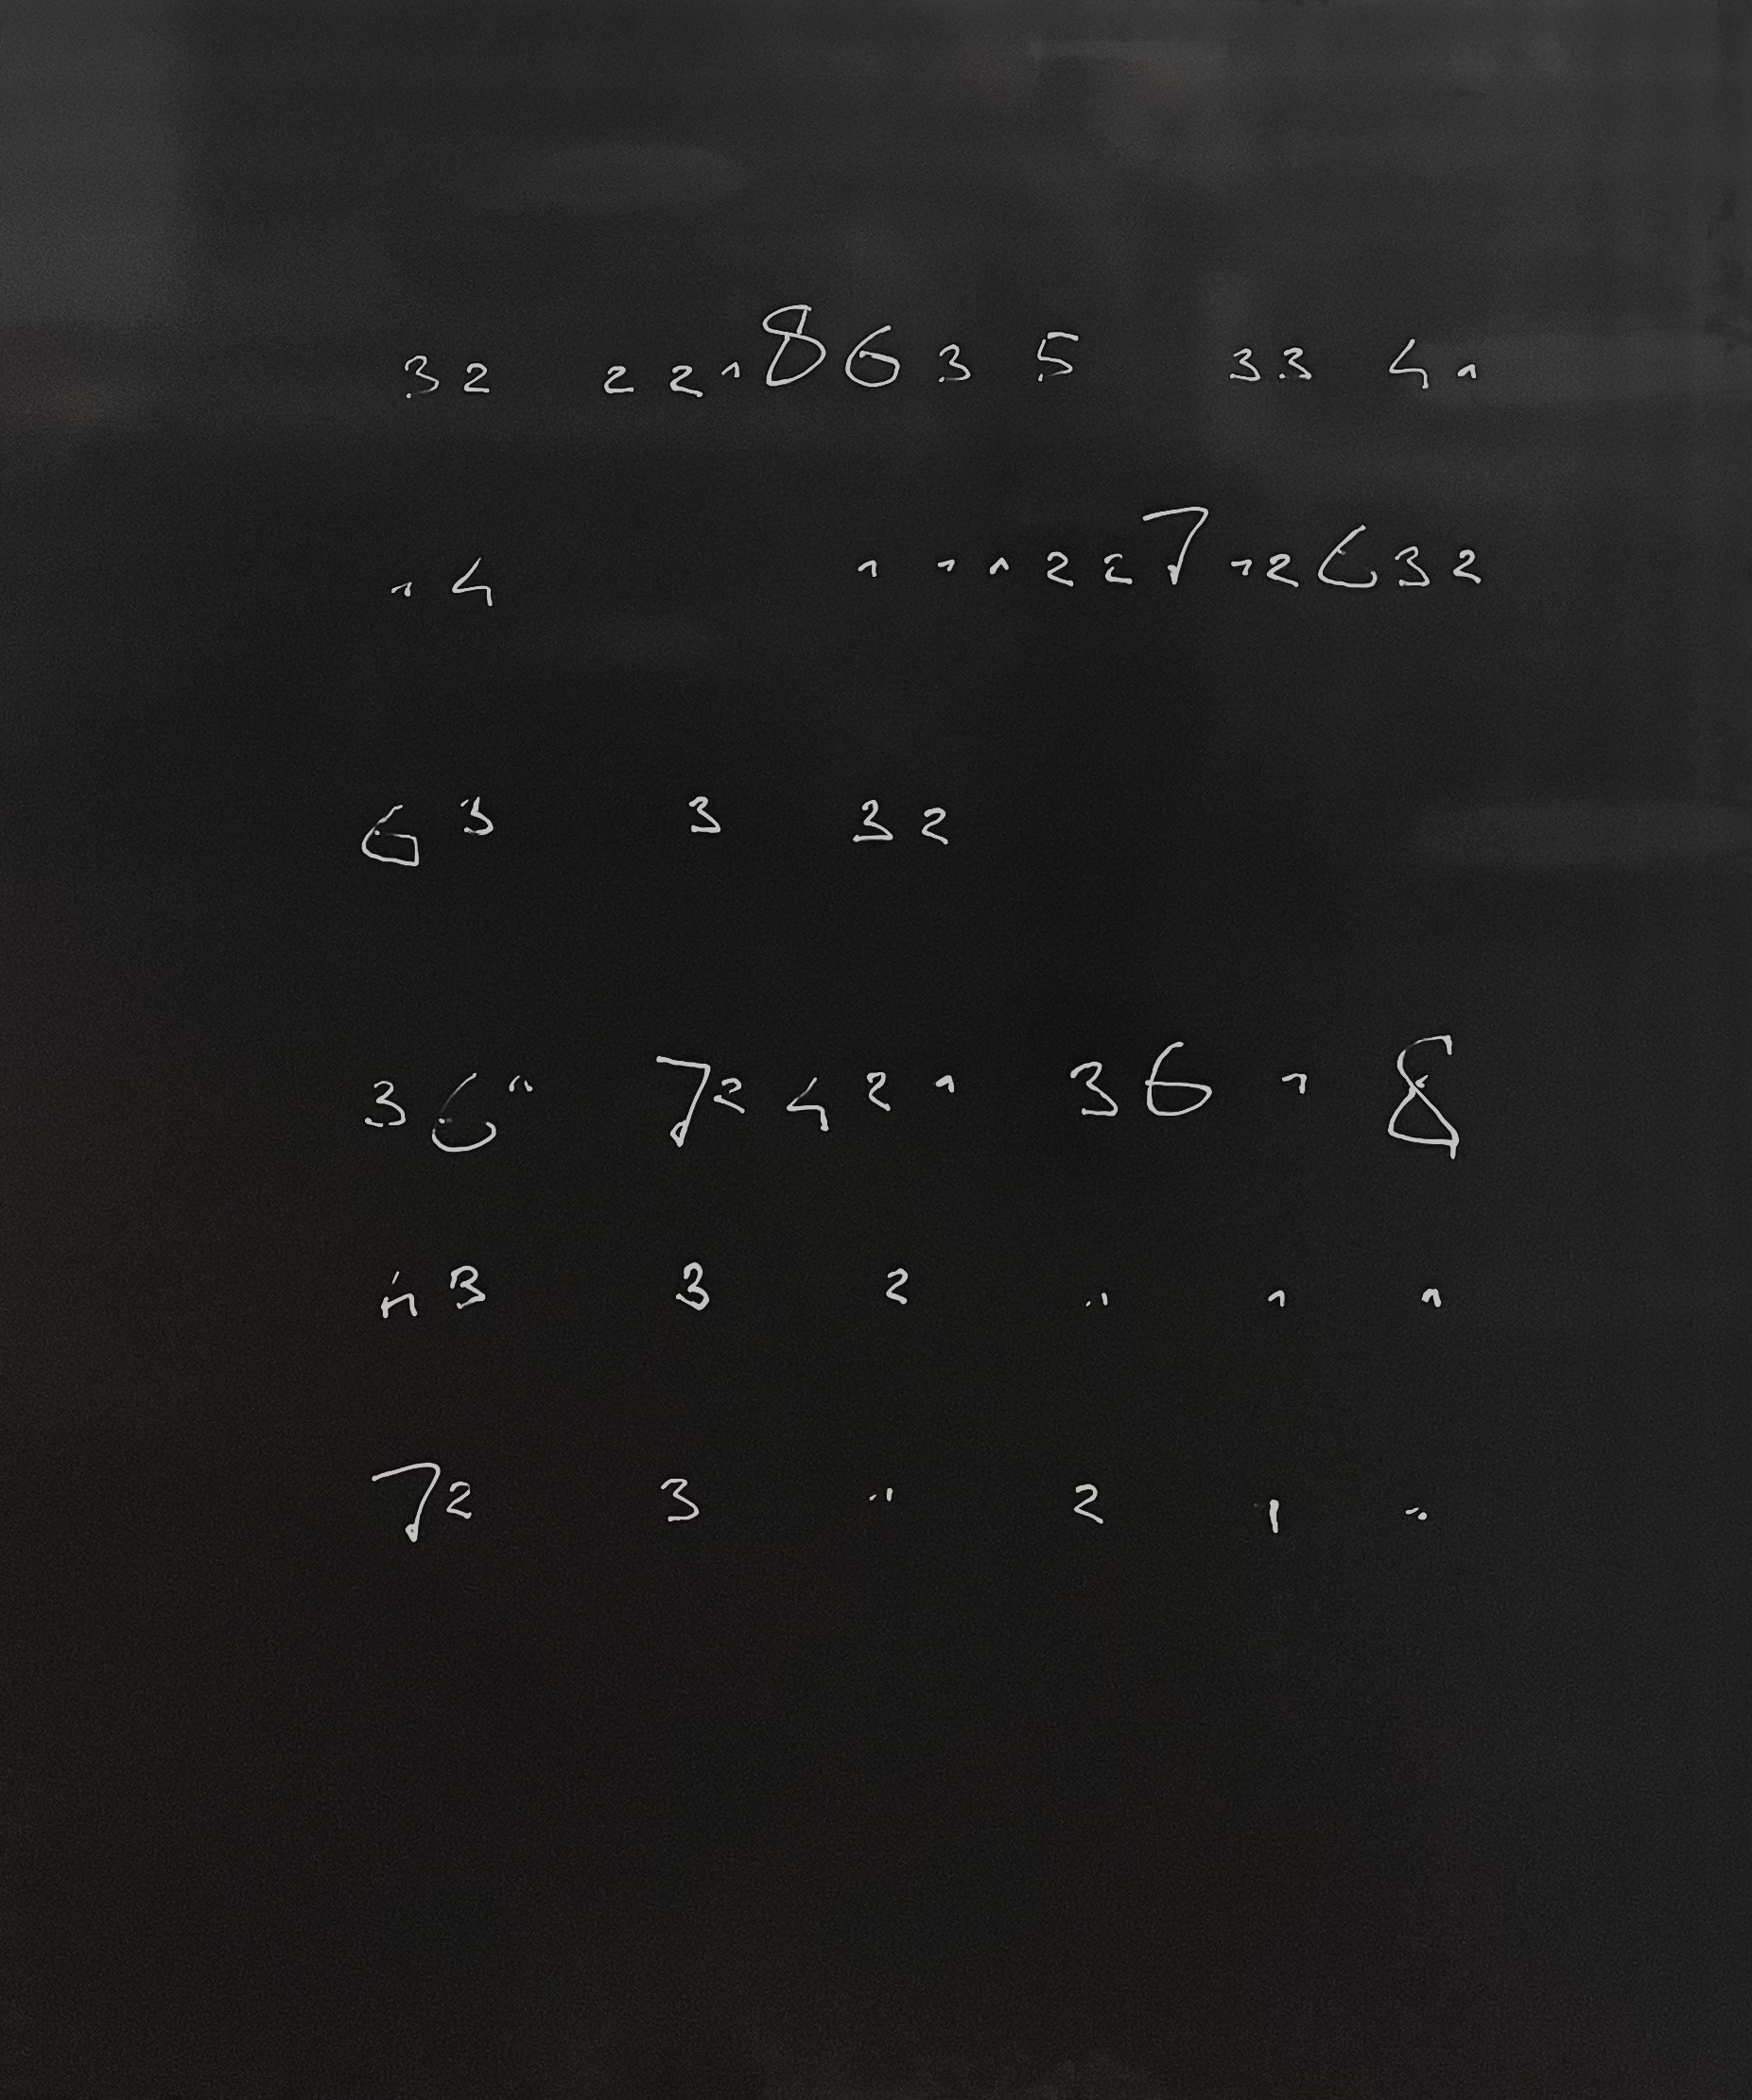 32 2218635 33 41
14 1 1 1 2 2 7 1 2 6 3 2
63 3 32
361 72421 36 1 8
13 3 2 1 1 1
72 3 1 2 1 1